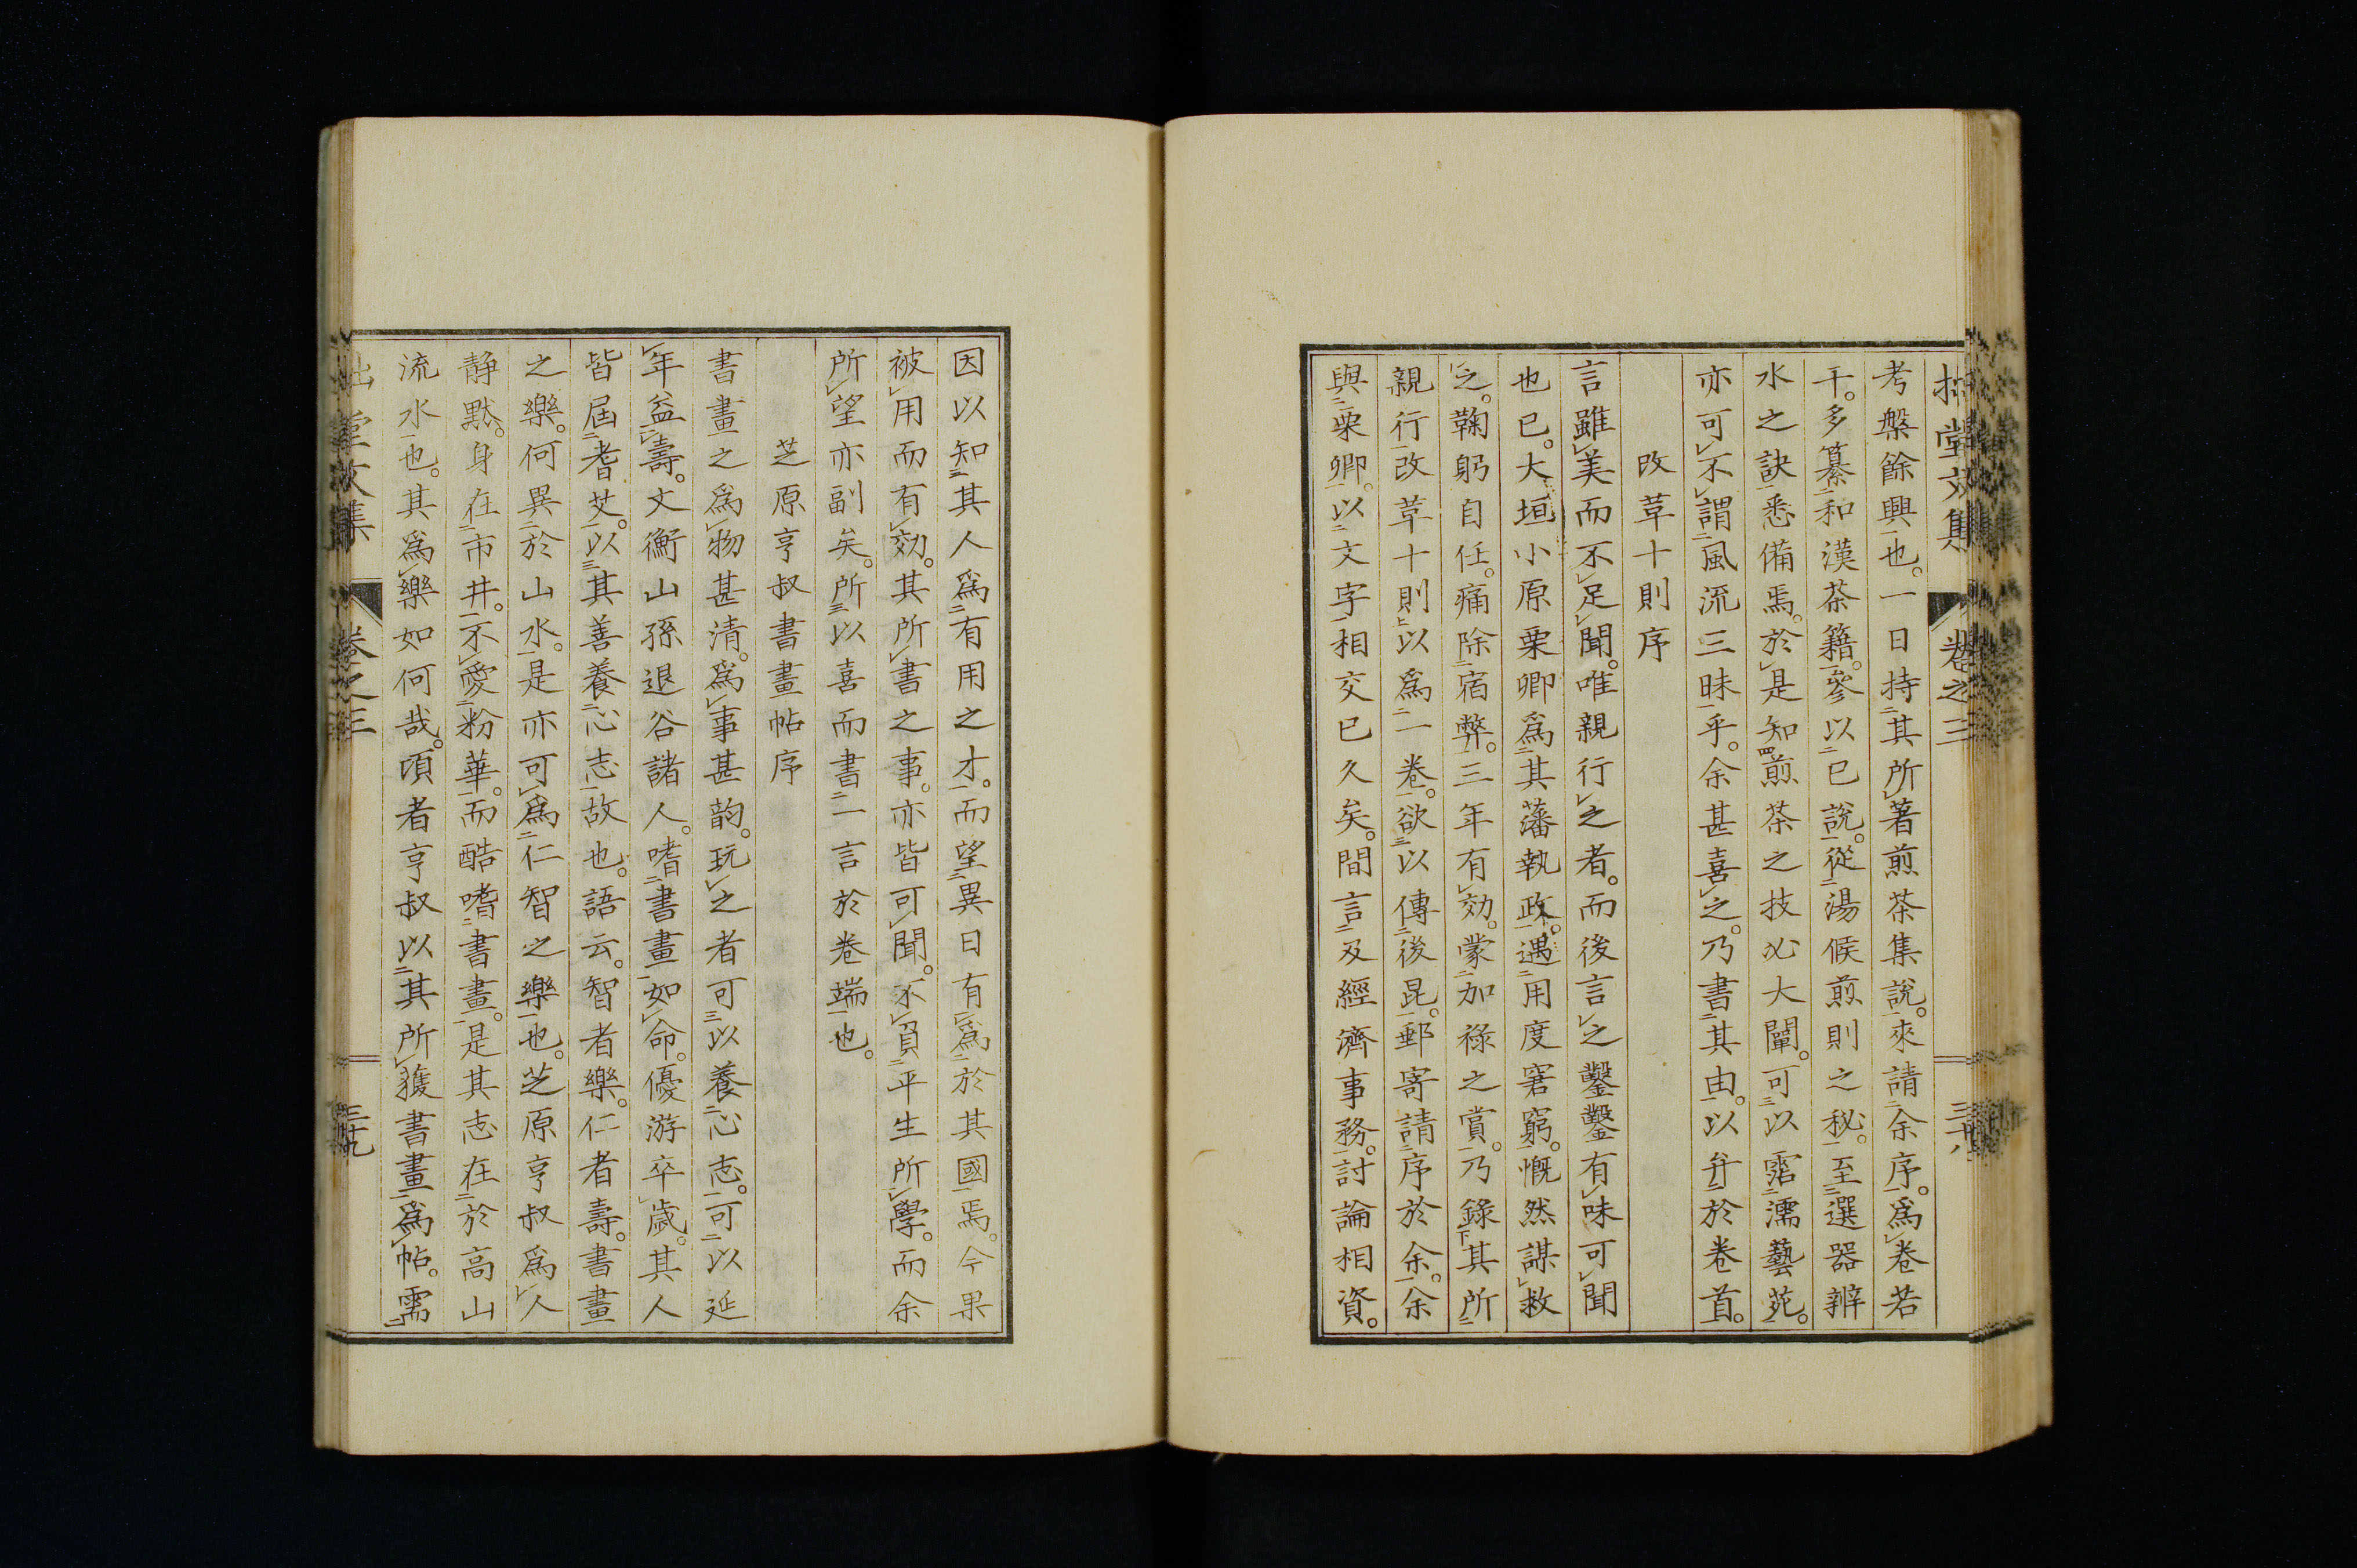 拙堂文集 卷之三 三十八
考槃餘興也。一日持其所著煎茶集說。來請余序。爲卷若
干。多纂和漢茶籍。參以已說。從湯候煎則之秘。至選器辨
水之訣悉備焉。於是知煎茶之技必大闡。可以霑濡藝苑。
亦可不謂風流三昧乎。余甚喜之。乃書其由。以弁於卷首。
改革十則序
言雖美而不足聞。唯親行之者。而後言之鑿鑿有味可聞
也已。大垣小原栗卿爲其藩執政。遇用度窘窮。慨然謀救
之。鞠躬自任。痛除宿弊。三年有効。蒙加祿之賞。乃錄其所
親行改革十則以爲一卷。欲以傳後昆。郵寄請序於余。余
與栗卿。以文字相交已久矣。間言及經濟事務。討論相資。
因以知其人爲有用之才。而望異日有爲於其國焉。今果
被用而有効。其所書之事。亦皆可聞。不負平生所學。而余
所望亦副矣。所以喜而書一言於卷端也。
芝原亨叔書畫帖序
書畫之爲物甚清。爲事甚韵。玩之者可以養心志。可以延
年益壽。文衡山孫退谷諸人。嗜書畫如命。優游卒歲。其人
皆屆耆艾。以其善養心志故也。語云。智者樂。仁者壽。書畫
之樂。何異於山水。是亦可爲仁智之樂也。芝原亨叔爲人
静黙。身在市井。不愛粉華。而酷嗜書畫。是其志在於高山
流水也。其爲樂如何哉。頃者亨叔以其所獲書畫爲帖。需
拙堂文集 卷之三 三十九